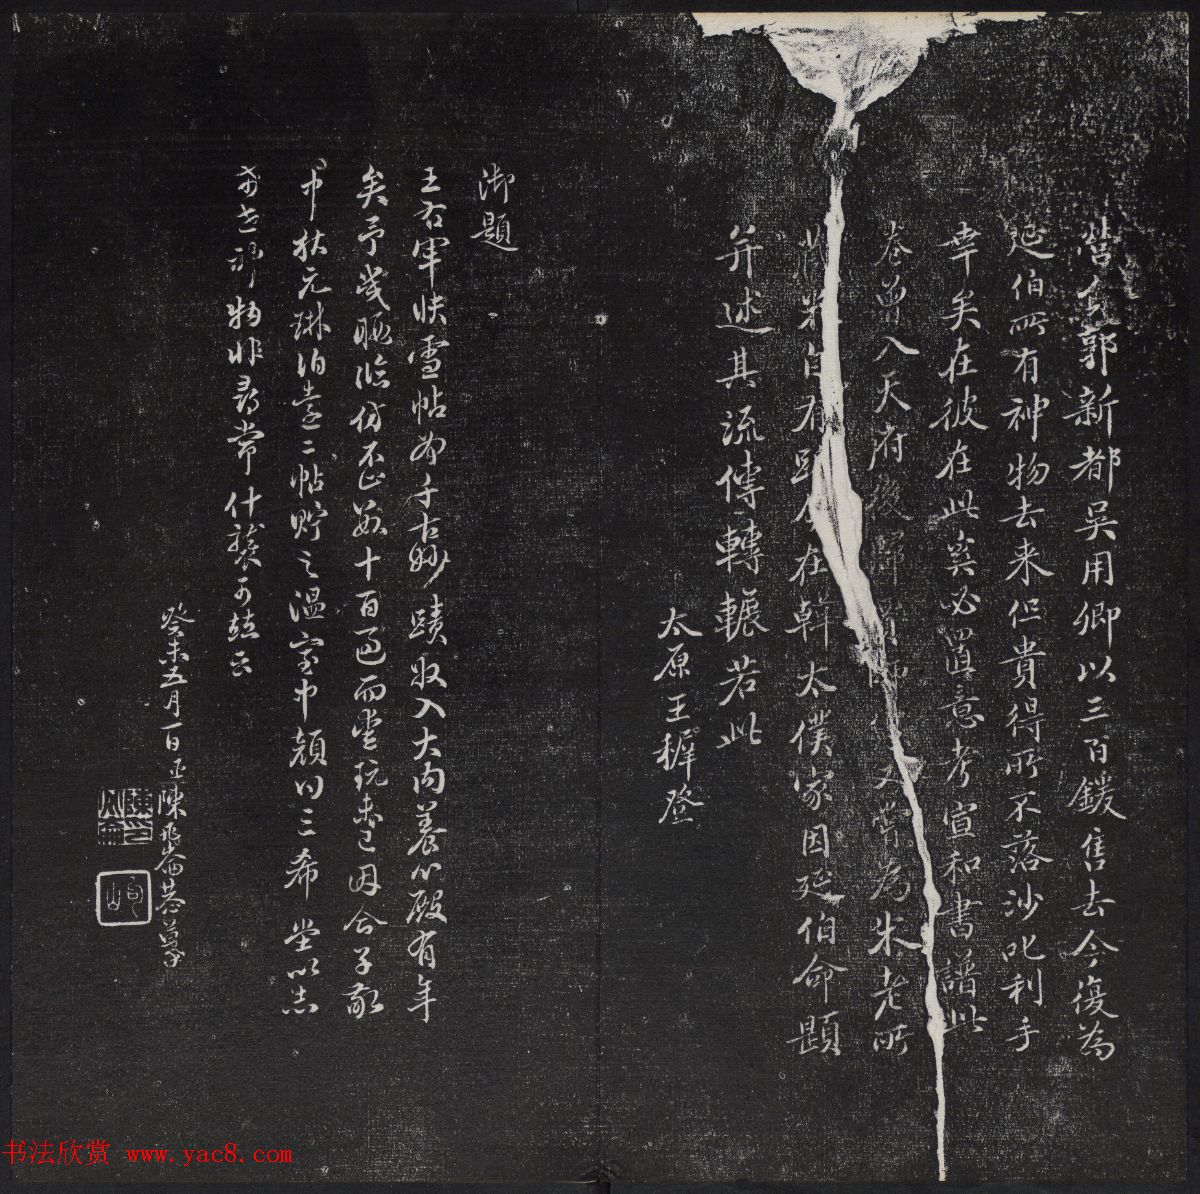 營人郭新都吳用卿以三百鍰售去今復為
延伯所有神物去来但貴得所不落沙叱利手
幸矣在彼在此奚必置意考宣和書譜此
卷曾入天府後歸 又嘗為朱老所
藏米自有跋今在韓太僕家因延伯命題
并述其流傳轉輾若此
太原王穉登
御題
王右軍快雪帖為千古妙蹟收入大內養心殿有年
矣予幾暇臨仿不止數十百過而愛玩未已因合子敬
中秋元琳伯遠二帖貯之溫室中顏曰三希堂以志
希世神物非尋常什襲可並云
癸未五月一日臣陳 崙恭摹
书法欣赏 www.yac8.com